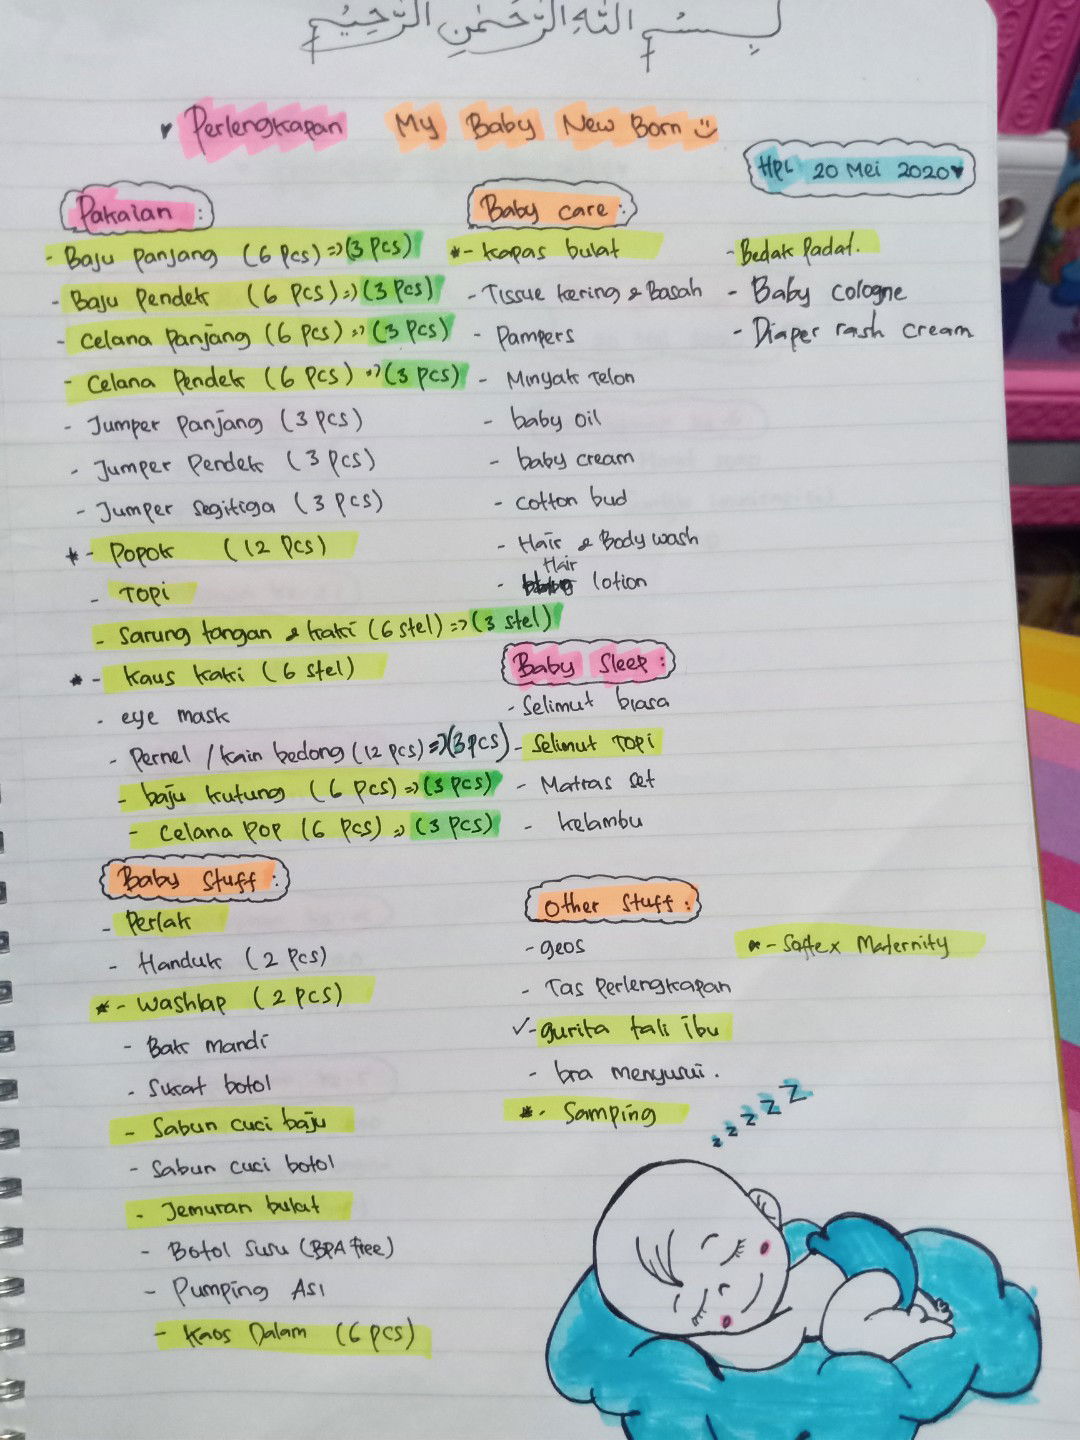 بِسْمِ اللهِ الرَّحْمٰنِ الرَّحِيْمِ
♥ Perlengkapan My Baby New Born
HPL 20 Mei 2020♥
Pakaian :
- Baju Panjang (6 Pcs) => (3 Pcs)
- Baju Pendek (6 Pcs) => (3 Pcs)
- Celana Panjang (6 Pcs) => (3 Pcs)
- Celana Pendek (6 Pcs) => (3 Pcs)
- Jumper Panjang (3 Pcs)
- Jumper Pendek (3 Pcs)
- Jumper Segitiga (3 Pcs)
* - Popok (12 Pcs)
- Topi
- Sarung tangan & kaki (6 stel) => (3 stel)
* - Kaus kaki (6 Stel)
- eye mask
- Pernel / kain bedong (12 Pcs) => (3 Pcs)
- baju kutung (6 Pcs) => (3 Pcs)
- Celana Pop (6 Pcs) => (3 Pcs)
Baby care :
* - kapas bulat
- Tissue kering & Basah
- Pampers
- Minyak Telon
- baby oil
- baby cream
- cotton bud
- Hair & Body wash
- Hair lotion
- Bedak Padat.
- Baby cologne
- Diaper rash cream
Baby Sleep :
- Selimut biasa
- Selimut Topi
- Matras set
- kelambu
Baby Stuff :
- Perlak
- Handuk (2 Pcs)
* - Washlap (2 Pcs)
- Bak mandi
- Sikat botol
- Sabun cuci baju
- Sabun cuci botol
- Jemuran bulat
- Botol Susu (BPA free)
- Pumping ASI
- Kaos Dalam (6 pcs)
Other Stuff :
- geos
- Tas Perlengkapan
✓- gurita tali ibu
- bra menyusui.
* - Samping
* - Softex Maternity
z z z z z